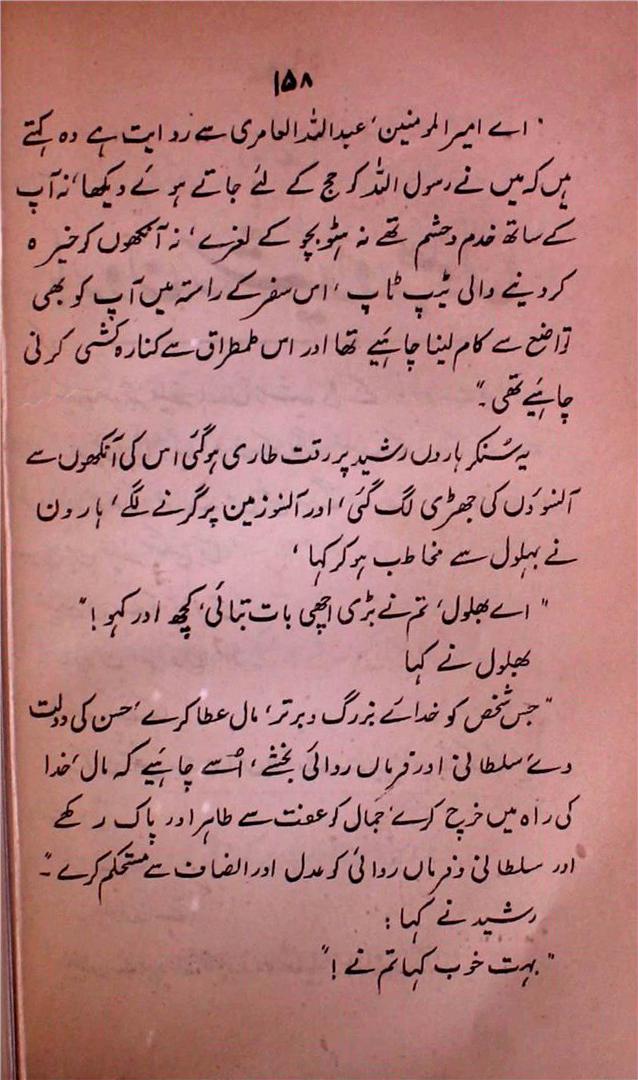 ۱۵۸
"اے امیر المومنین، عبداللہ العامری سے روایت ہے وہ کہتے
ہیں کہ میں نے رسول اللہ کو حج کے لئے جاتے ہوئے دیکھا، نہ آپ
کے ساتھ خدم و حشم تھے نہ ہٹو بچو کے نعرے، نہ آنکھوں کو خیرہ
کر دینے والی ٹیپ ٹاپ، اس سفر کے راستہ میں آپ کو بھی
تواضع سے کام لینا چاہئیے تھا اور اس طمطراق سے کنارہ کشی کرنی
چاہئیے تھی۔"
یہ سُنکر ہاروں رشید پر رقت طاری ہوگئی اس کی آنکھوں سے
آنسوؤں کی جھڑی لگ گئی، اور آنسو زمین پر گرنے لگے، ہارون
نے بہلول سے مخاطب ہو کر کہا،
"اے بھلول، تم نے بڑی اچھی بات بتائی، کچھ اور کہو!"
بھلول نے کہا
"جس شخص کو خدائے بزرگ و برتر، مال عطا کرے، حسن کی دولت
دے، سلطانی اور فرماں روائی بخشے، اُسے چاہئیے کہ مال، خدا
کی راہ میں خرچ کرے، جمال کو عفت سے طاہر اور پاک رکھے
اور سلطانی و فرماں روائی کو عدل اور انصاف سے مستحکم کرے۔"
رشید نے کہا:
"بہت خوب کہا تم نے!"